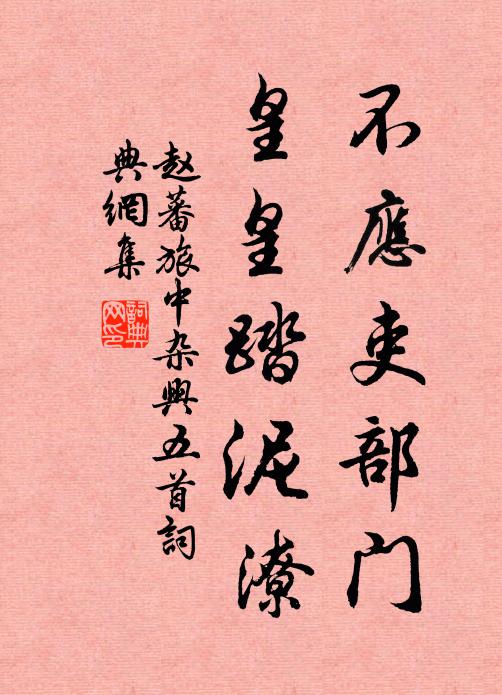 不應吏部門
皇皇踏泥潦
赵蕃旅中杂興五首詞
典網集
詞典
网印